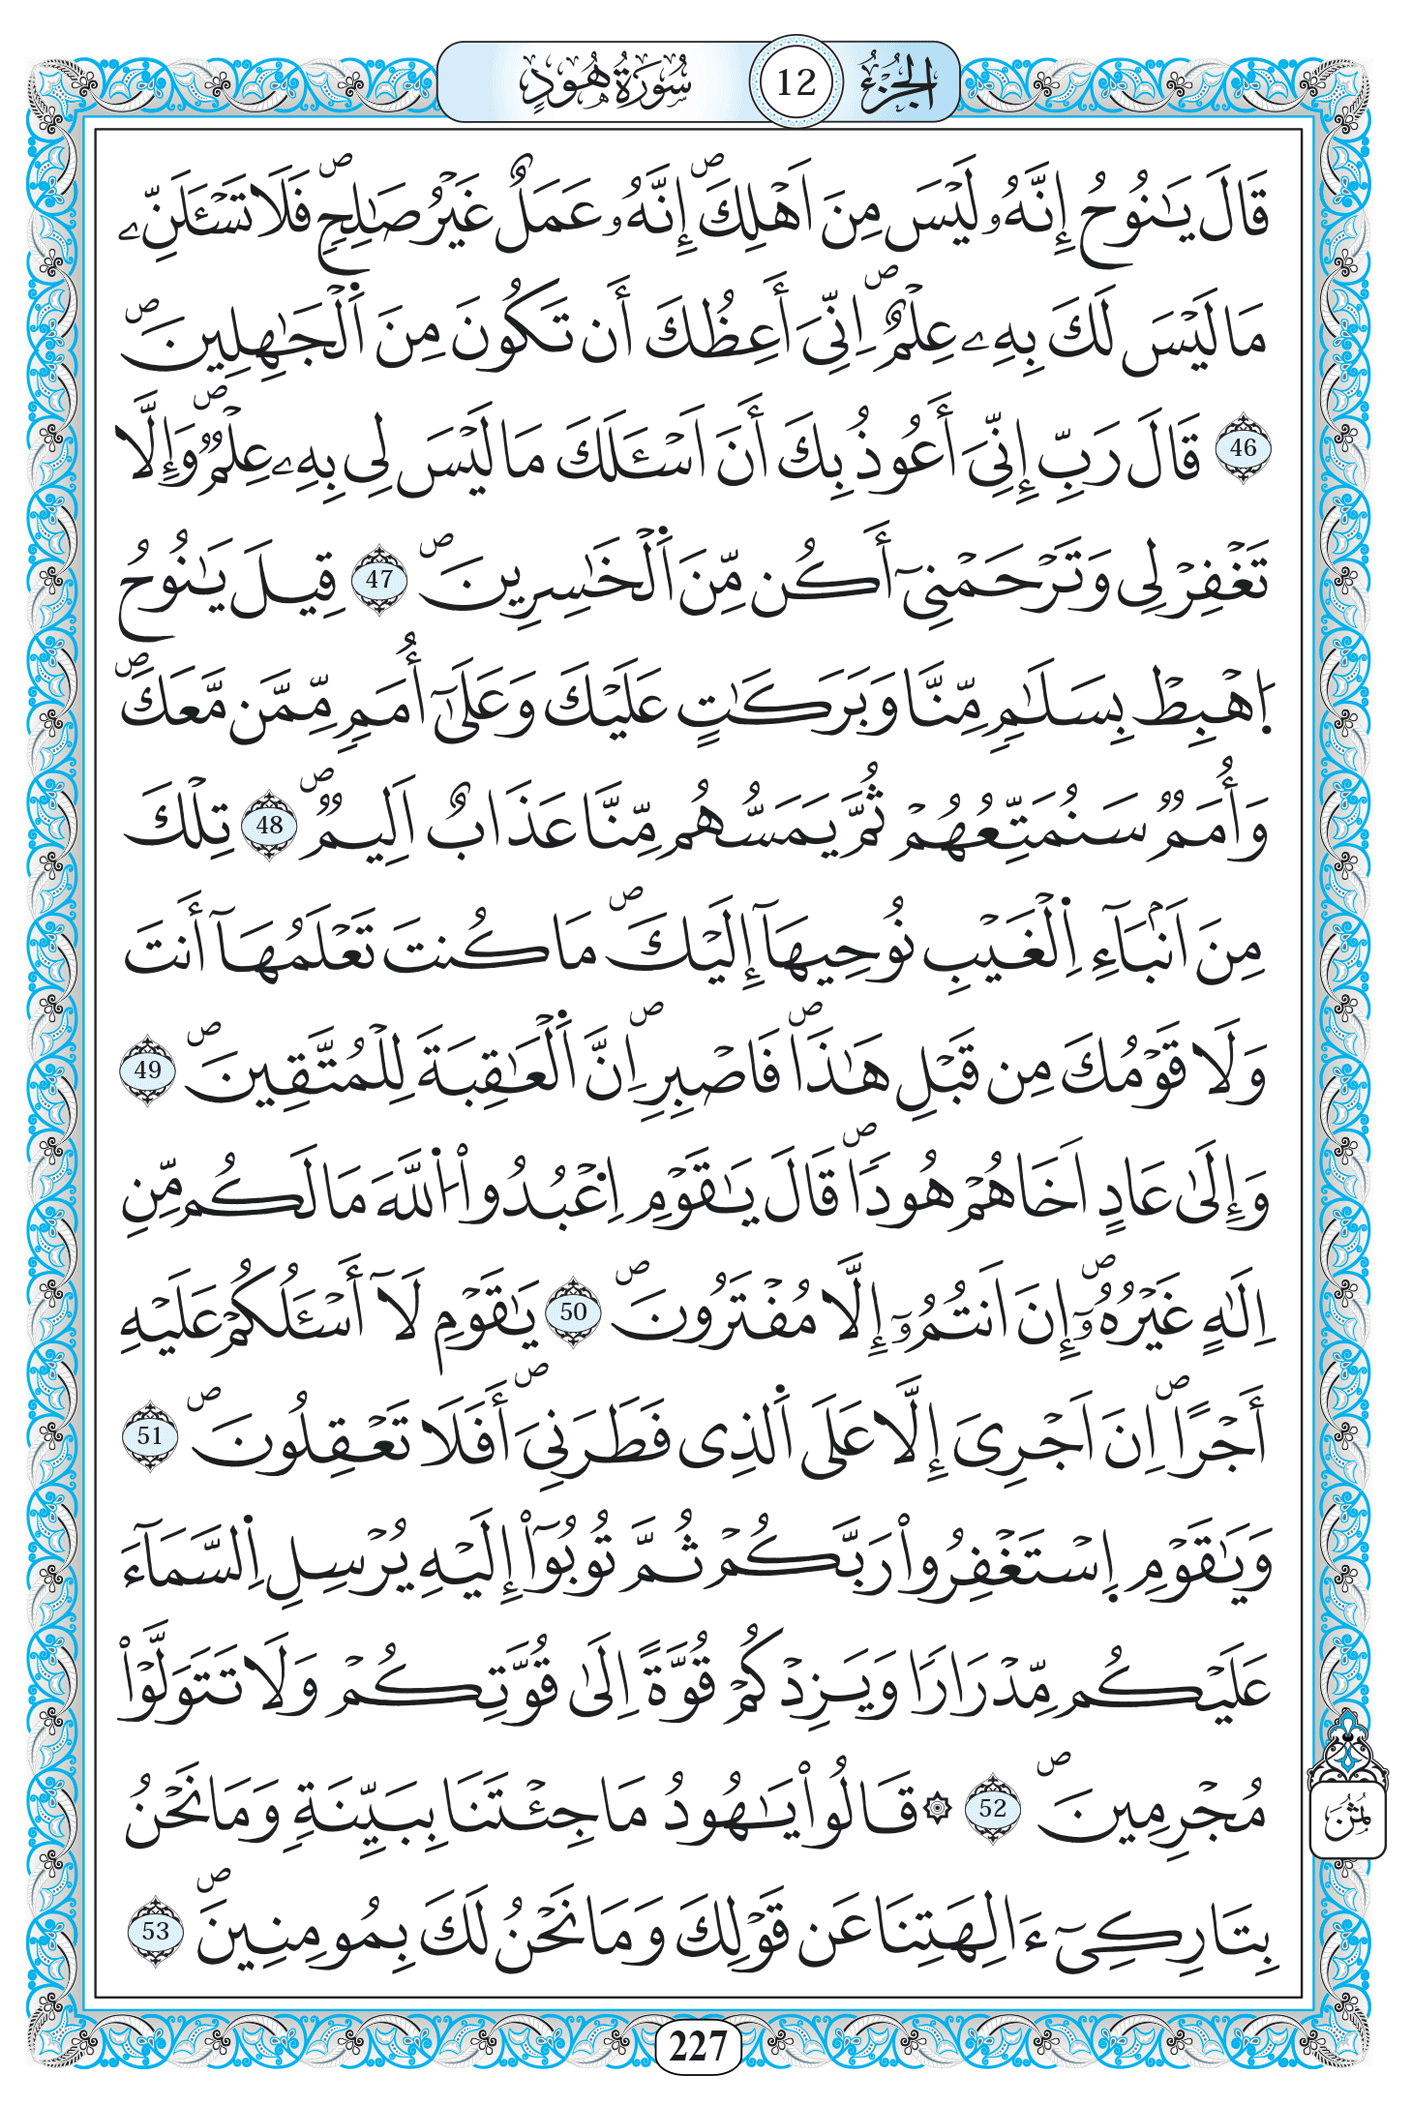 الجُزْءُ 12 سُورَةُ هُودٍ
قَالَ يَٰنُوحُ إِنَّهُۥ لَيْسَ مِنَ اَهْلِكَۖ إِنَّهُۥ عَمَلٌ غَيْرُ صَٰلِحٖۖ فَلَا تَسْـَٔلَنِّۦ
مَا لَيْسَ لَكَ بِهِۦ عِلْمٌۖ اِنِّيَ أَعِظُكَ أَن تَكُونَ مِنَ اَ۬لْجَٰهِلِينَۖ
46 قَالَ رَبِّ إِنِّيَ أَعُوذُ بِكَ أَنَ اَسْـَٔلَكَ مَا لَيْسَ لِي بِهِۦ عِلْمٞۖ وَإِلَّا
تَغْفِرْ لِي وَتَرْحَمْنِيٓ أَكُن مِّنَ اَ۬لْخَٰسِرِينَۖ 47 قِيلَ يَٰنُوحُ
اُ۪هْبِطْ بِسَلَٰمٖ مِّنَّا وَبَرَكَٰتٍ عَلَيْكَ وَعَلَىٰٓ أُمَمٖ مِّمَّن مَّعَكَۖ
وَأُمَمٞ سَنُمَتِّعُهُمْ ثُمَّ يَمَسُّهُم مِّنَّا عَذَابٌ اَلِيمٞۖ 48 تِلْكَ
مِنَ اَنۢبَآءِ اِ۬لْغَيْبِ نُوحِيهَآ إِلَيْكَۖ مَا كُنتَ تَعْلَمُهَآ أَنتَ
وَلَا قَوْمُكَ مِن قَبْلِ هَٰذَاۖ فَاصْبِرِۖ اِنَّ اَ۬لْعَٰقِبَةَ لِلْمُتَّقِينَۖ 49
وَإِلَىٰ عَادٍ اَخَاهُمْ هُودٗاۖ قَالَ يَٰقَوْمِ اِ۟عْبُدُواْ اُ۬للَّهَ مَا لَكُم مِّنِ
اِلَٰهٍ غَيْرُهُۥٓۖ إِنَ اَنتُمُۥٓ إِلَّا مُفْتَرُونَۖ 50 يَٰقَوْمِ لَآ أَسْـَٔلُكُمْ عَلَيْهِ
أَجْرًاۖ اِنَ اَجْرِيَ إِلَّا عَلَى اَ۬لذِي فَطَرَنِيَۖ أَفَلَا تَعْقِلُونَۖ 51
وَيَٰقَوْمِ اِ۪سْتَغْفِرُواْ رَبَّكُمْ ثُمَّ تُوبُوٓاْ إِلَيْهِ يُرْسِلِ اِ۬لسَّمَآءَ
عَلَيْكُم مِّدْرَارٗا وَيَزِدْكُمْ قُوَّةً اِلَىٰ قُوَّتِكُمْ وَلَا تَتَوَلَّوْاْ
مُجْرِمِينَۖ 52 ۞ قَالُواْ يَٰهُودُ مَا جِئْتَنَا بِبَيِّنَةٖ وَمَا نَحْنُ
بِتَارِكِيٓ ءَالِهَتِنَا عَن قَوْلِكَ وَمَا نَحْنُ لَكَ بِمُومِنِينَۖ 53
ثُمُن
227